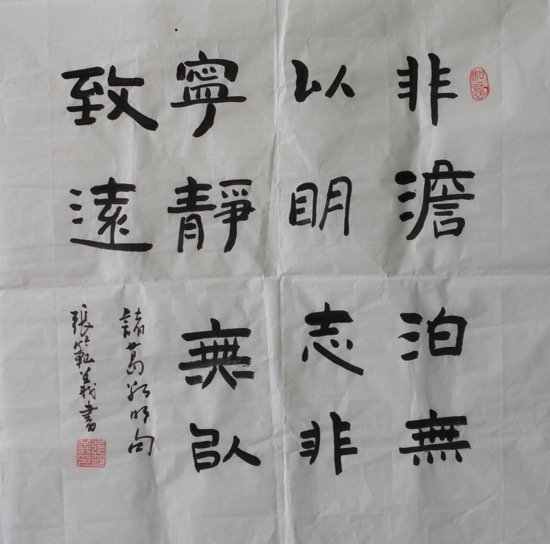 非澹泊無
以明志非
寧靜無以
致遠
諸葛孔明句
張範義書